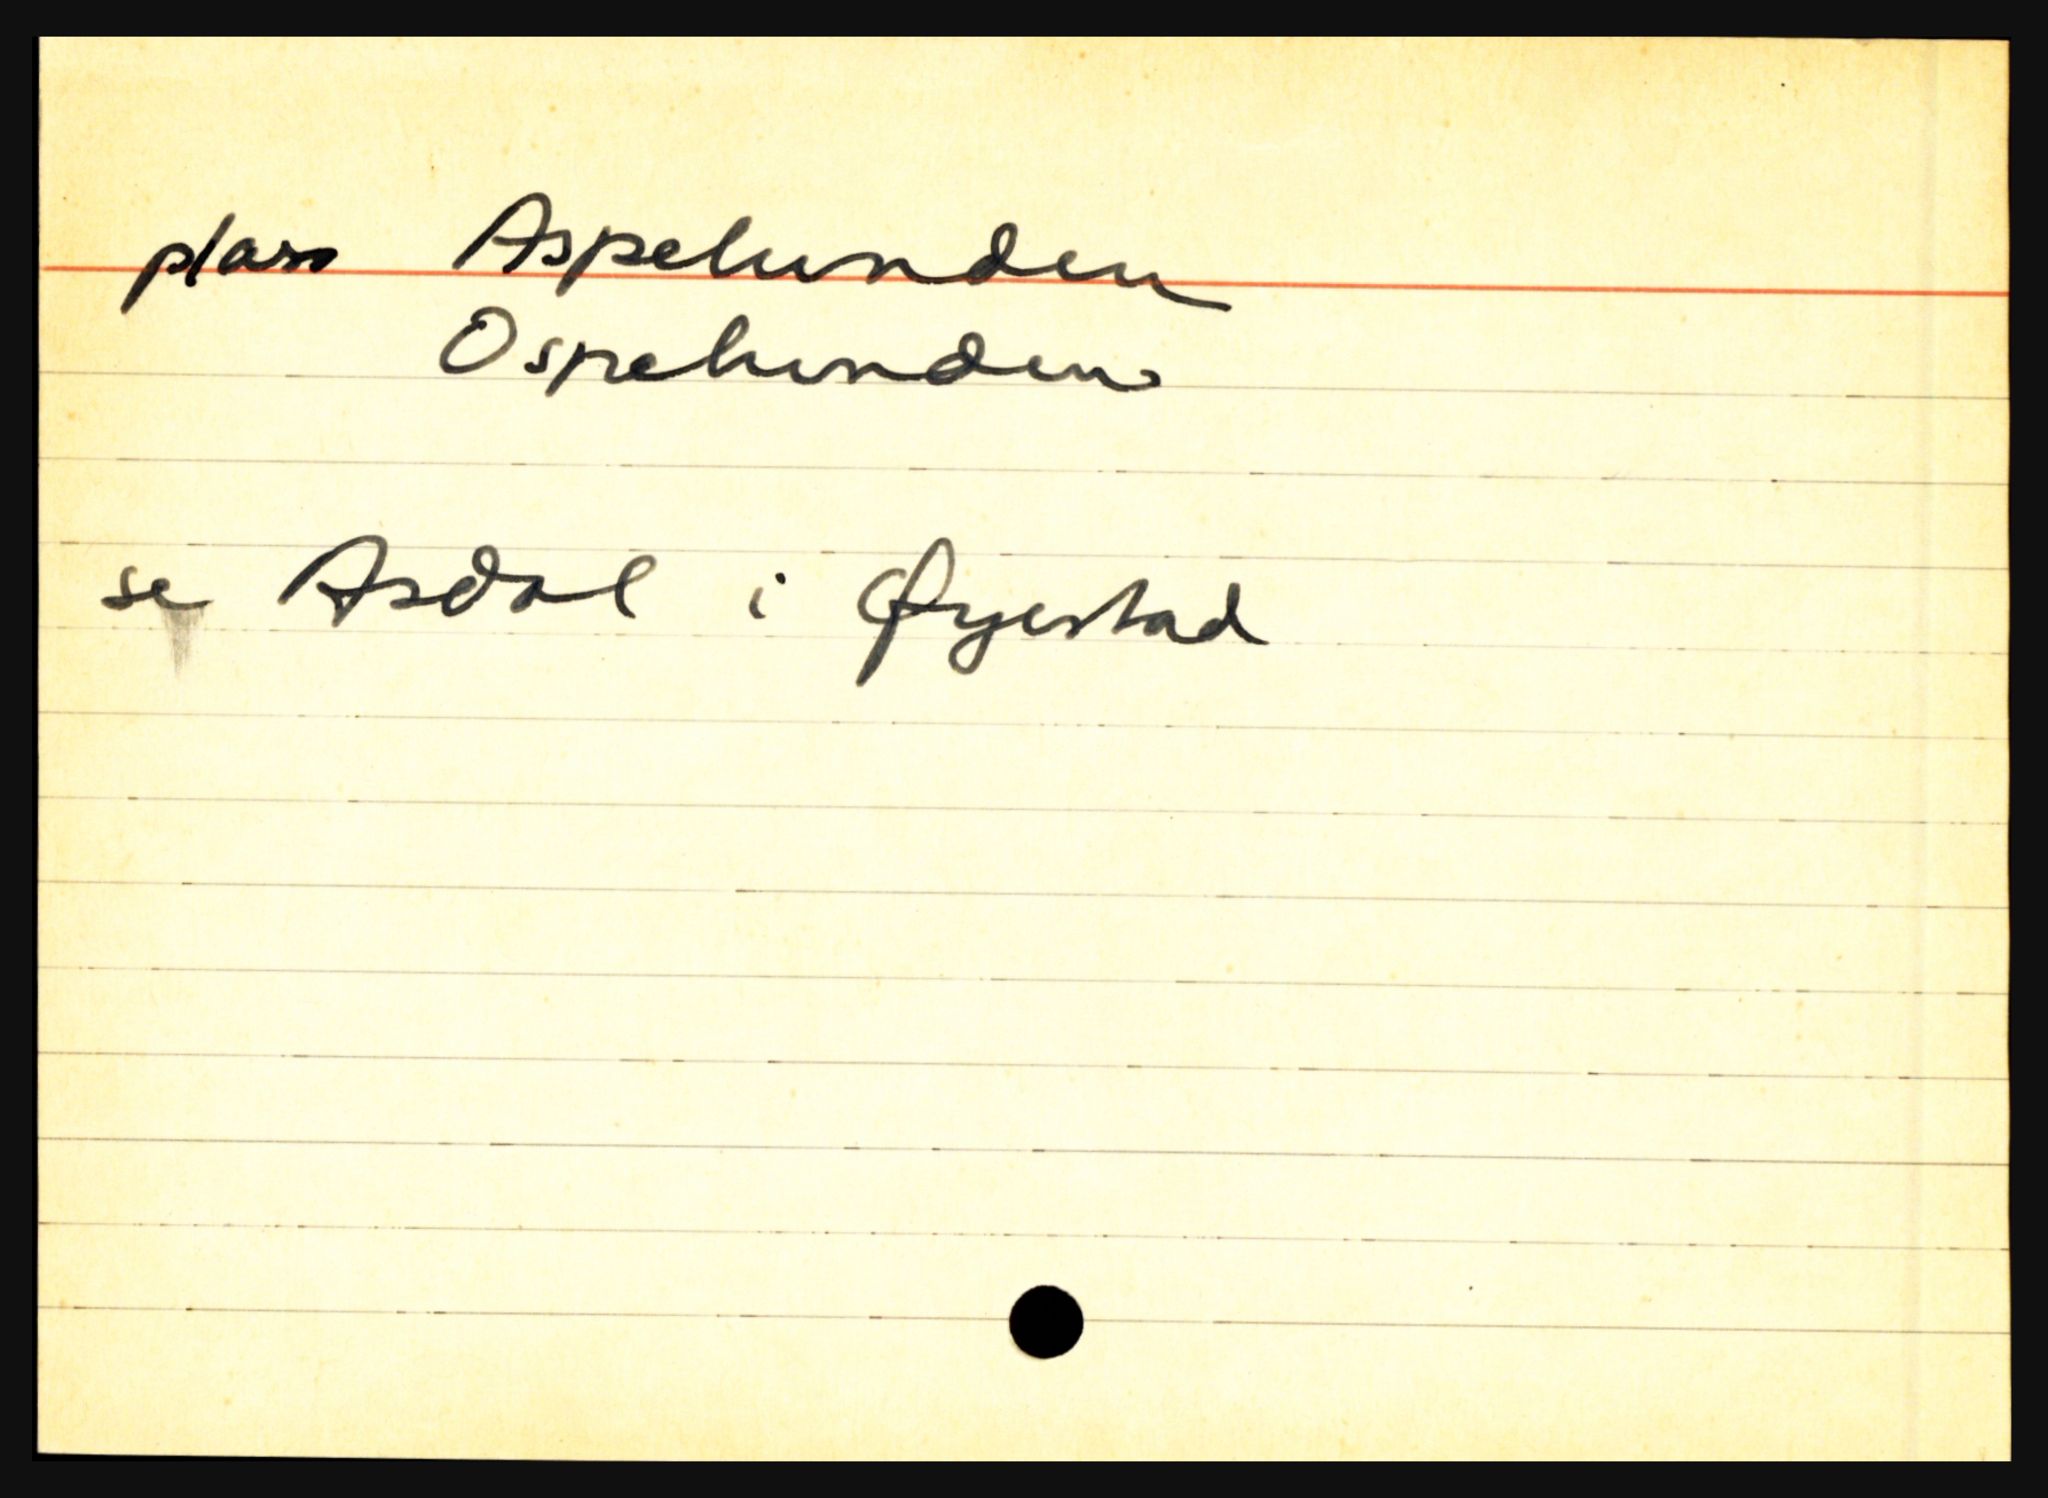 plass Aspelunden
Ospelunden
se Asdal i Øyestad